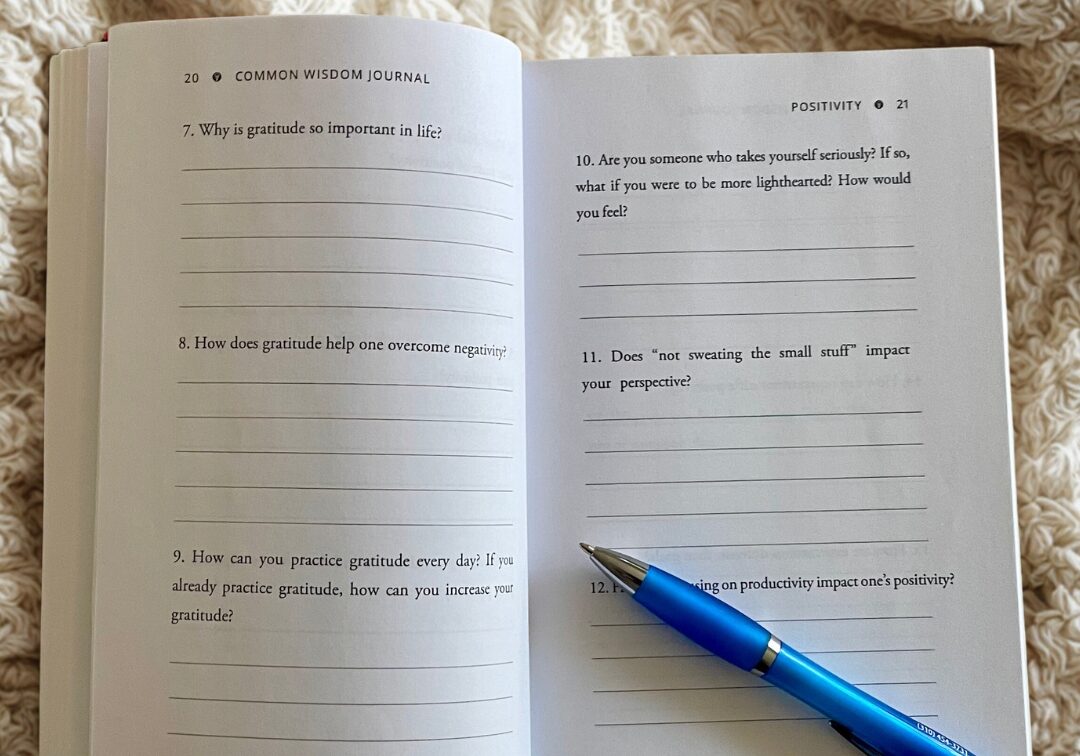 20 COMMON WISDOM JOURNAL
7. Why is gratitude so important in life?
8. How does gratitude help one overcome negativity?
9. How can you practice gratitude every day? If you
already practice gratitude, how can you increase your
gratitude?
POSITIVITY 21
10. Are you someone who takes yourself seriously? If so,
what if you were to be more lighthearted? How would
you feel?
11. Does “not sweating the small stuff” impact
your perspective?
12. on productivity impact one’s positivity?